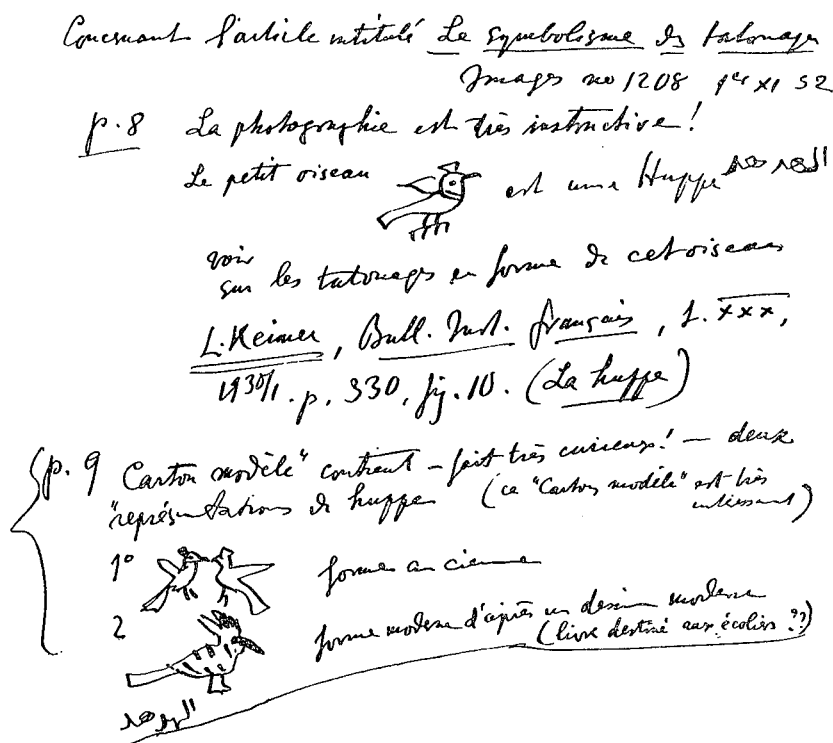 Concernant l'article intitulé Le symbolisme des tatouages
Images no 1208 1er XI 52
p.8 La photographie est très instructive!
Le petit oiseau est une Huppe الهدهد
voir
sur les tatouages en forme de cet oiseau
L. Keimer, Bull. Inst. français, t. XXX,
1930/1. p. 330, fig. 10. (La huppe)
p. 9 Carton modèle" contient – fait très curieux! – deux
"représentations de huppe (ce "Carton modèle" est très
intéressant)
1° forme ancienne
2 forme moderne d'après un dessin moderne
(livre destiné aux écoliers ??)
الهدهد